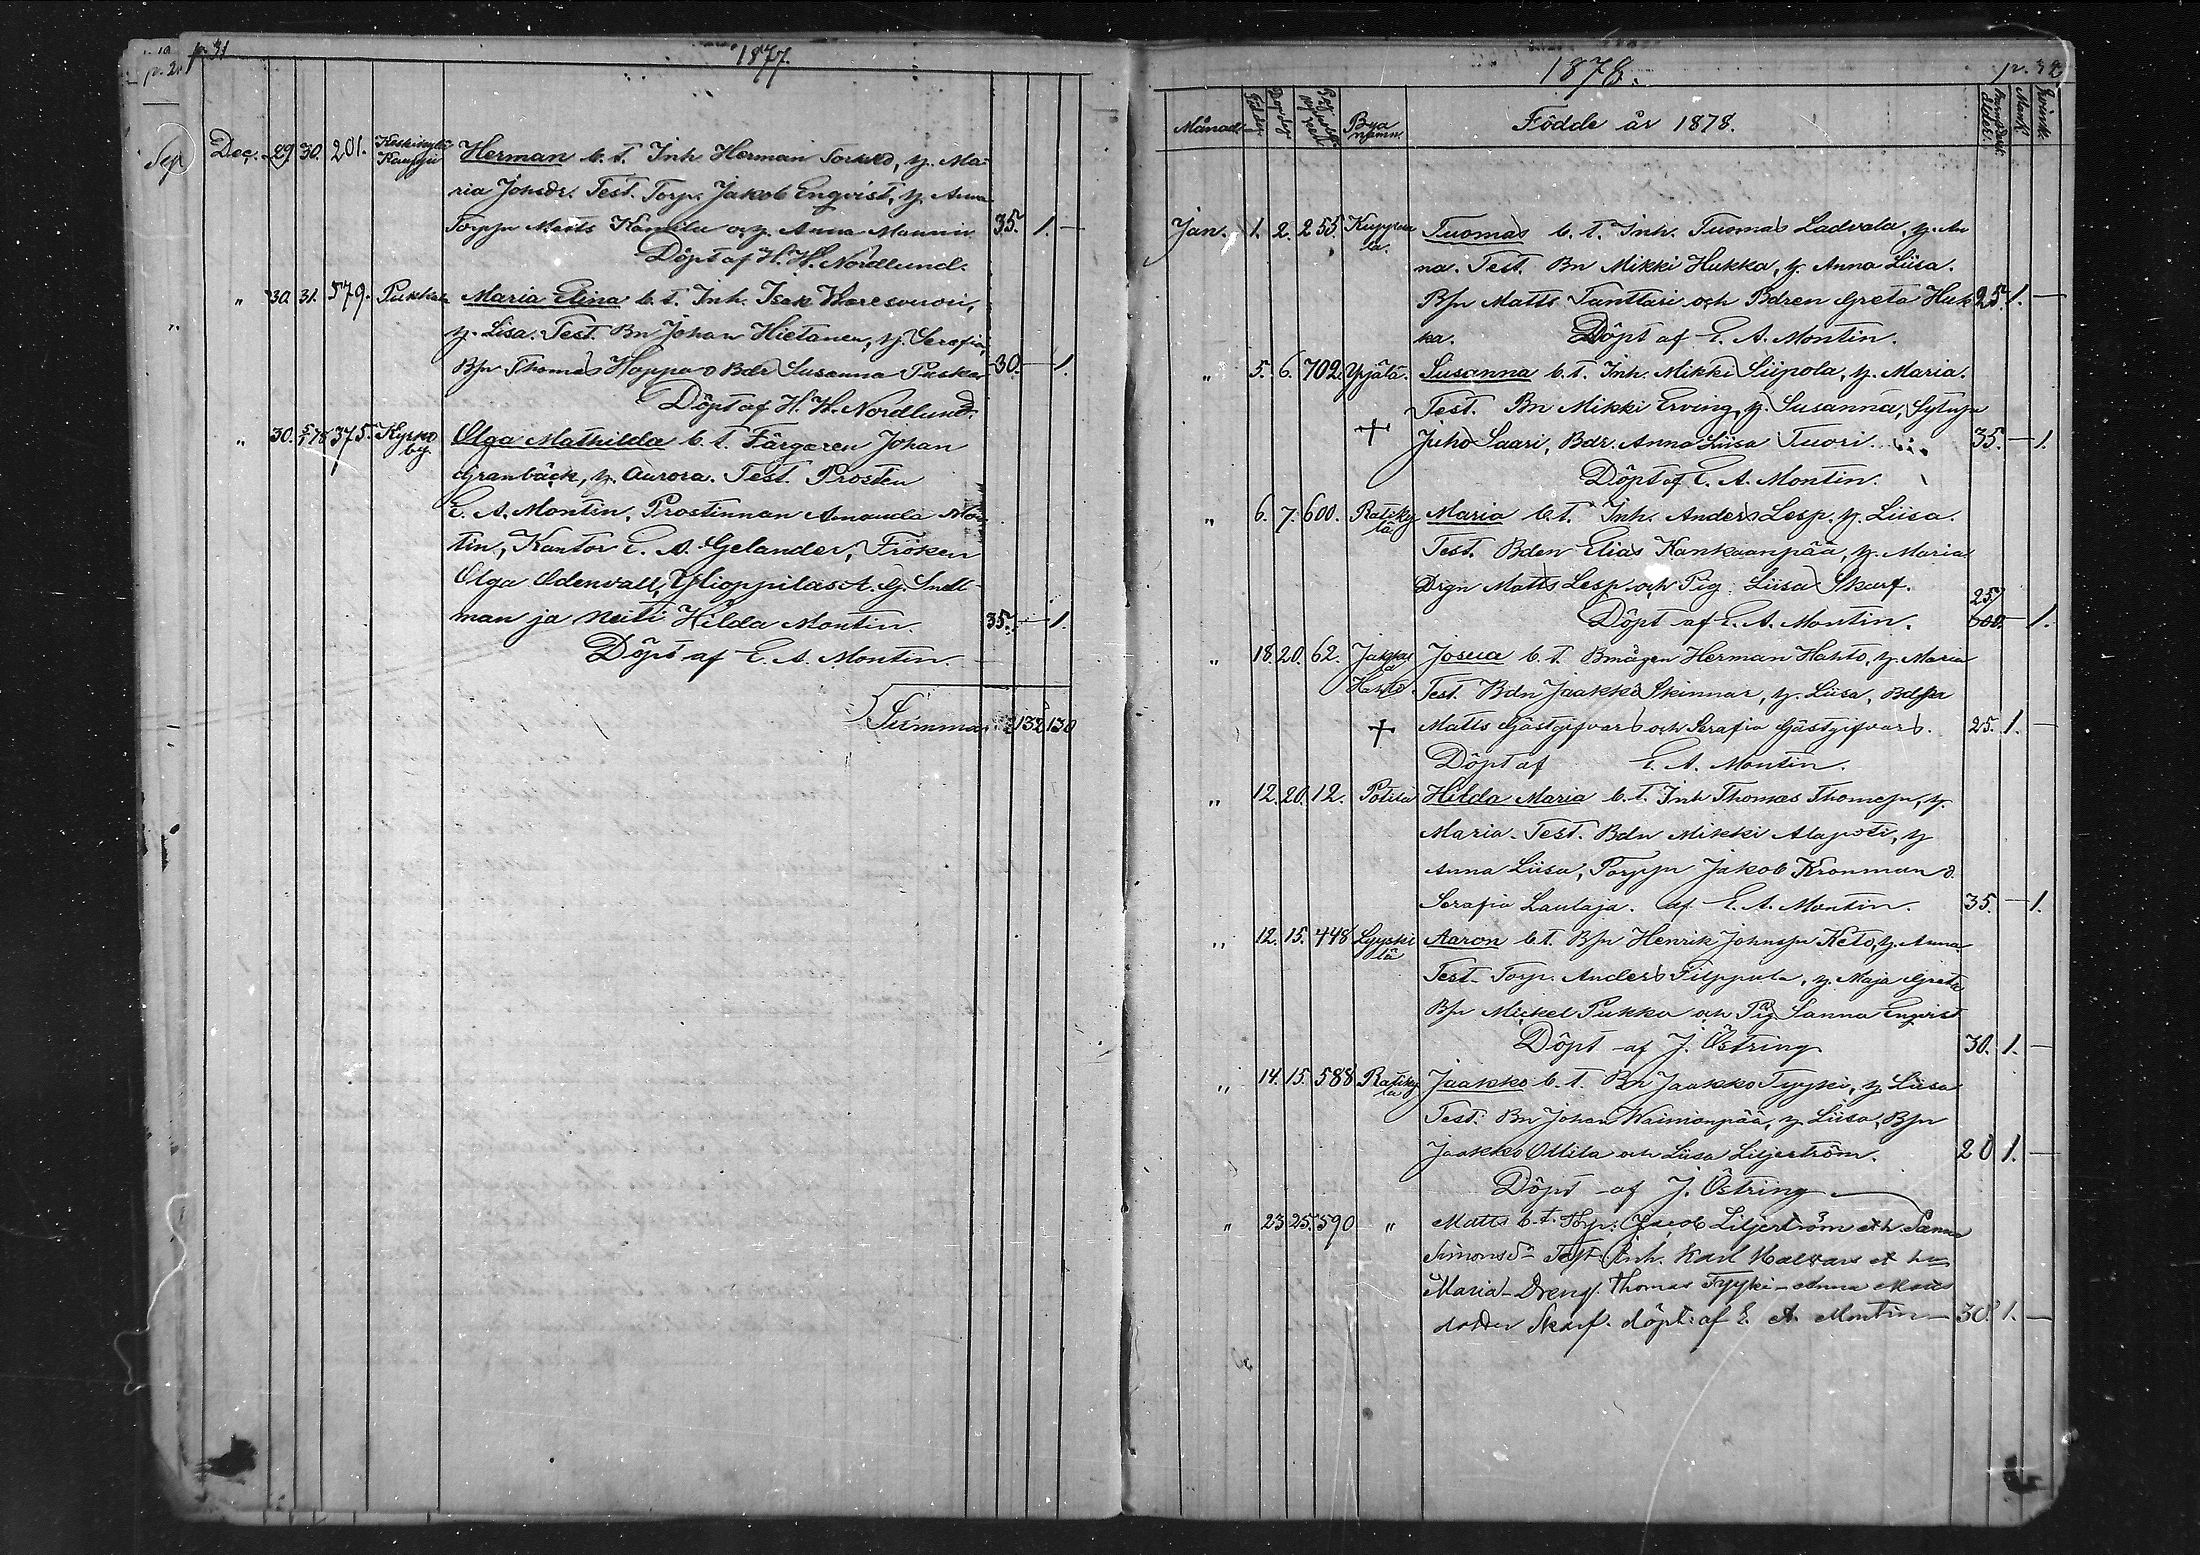 p. 31
1877.
Dec. 29. 30. 201. Herman b. t. Inh Herman y. Ma-
ria Johsdr. Test. Torp. Jakob Enqvist, y. Anna
Torppn Matts o. y. Anna 35. 1. —
Döpt af H. H. Nordlund.
" 30. 31. 579. Maria Elina b. t. Inh. Isak
y. Lisa. Test. Bn Johan Hietanen, y. Serafia,
Bpn Thomas Hoppa o Bdr Susanna 30. — 1.
Döpt af H. H. Nordlund.
" 30. 5/1 78 375. Kyrko by. Olga Mathilda b. t. Färgaren Johan
Granbäck, y. Aurora. Test. Prosten
E. A. Montin, Prostinnan Amanda Mon
tin, Kantor E. A. Gelander, Fröken
Olga Odenvall, Ylioppilas A. G. Snell-
man ja neiti Hilda Montin. 35. — 1.
Döpt af E. A. Montin.
Summa 132 130
1878. p. 32
Månad. Byanamn. Födde år 1878. Mank. Qvink.
Jan. 1. 2. 255. Tuomas b. t. Inh. Tuomas Ladvala, y. An
na. Test. Bn Mikki Hukka, y. Anna Liisa.
Bpn Matts Tanttari och Bdren Greta Huk 25. 1. —
ka. Döpt af E. A. Montin.
" 5. 6. 702. Ypjätä. Susanna b. t. Inh. Mikki Siipola, y. Maria.
Test. Bn Mikki Erving, y. Susanna,
+ Juho Saari, Bdr. Anna Liisa Tuori. 35. — 1.
Döpt af E. A. Montin.
" 6. 7. 600. Ratiky lä Maria b. t. Inh. Anders Lesp. y. Liisa.
Test. Bden Elias Kankaanpää, y. Maria
Drgn Matts Lesp och Pig. Liisa Skarf. 25
Döpt af E. A. Montin. — 1.
" 18. 20. 62. Jakku la Hahto Josua b. t. Bmågen Herman Hahto, y. Maria
Test. Bdn Jaakko Skinnar, y. Liisa,
+ Matts Gästgifvars och Serafia Gästgifvars. 25. 1. —
Döpt af E. A. Montin.
" 12. 20. 12. Potila Hilda Maria b. t. Inh Thomas Thomepn, y.
Maria. Test. Bdn Mikki Alapoti, y
Anna Liisa, Torppn Jakob Kronman o.
Serafia Laulaja. af E. A. Montin. 35. — 1.
" 12. 15. 448 Lyyski lä Aaron b. t. Bpn Henrik Johnspn Keto, y. Anna.
Test. Torp. Anders Filppula, y. Maja Greta
Bpn Mickel Pukka och Pig Sanna Enqvist
Döpt af J. Östring 30. 1. —
" 14. 15. 588 Ratiky lä Jaakko b. t. Bn Jaakko Tyyki, y Liisa
Test. Bn Johan Kaivionpää, y. Liisa, Bpn
Jaakko Ollila och Liisa Liljeström. 20 1. —
Döpt af J. Östring
" 23 25. 590 " Matts b. t. Torp: Jacob Liljeström och Sanna
Simonsdr Test: Inh. Karl
Maria - Dreng. Thomas Tyyki - Anna Matts
dotter Skarf. döpt af E. A. Montin — 30. 1. —